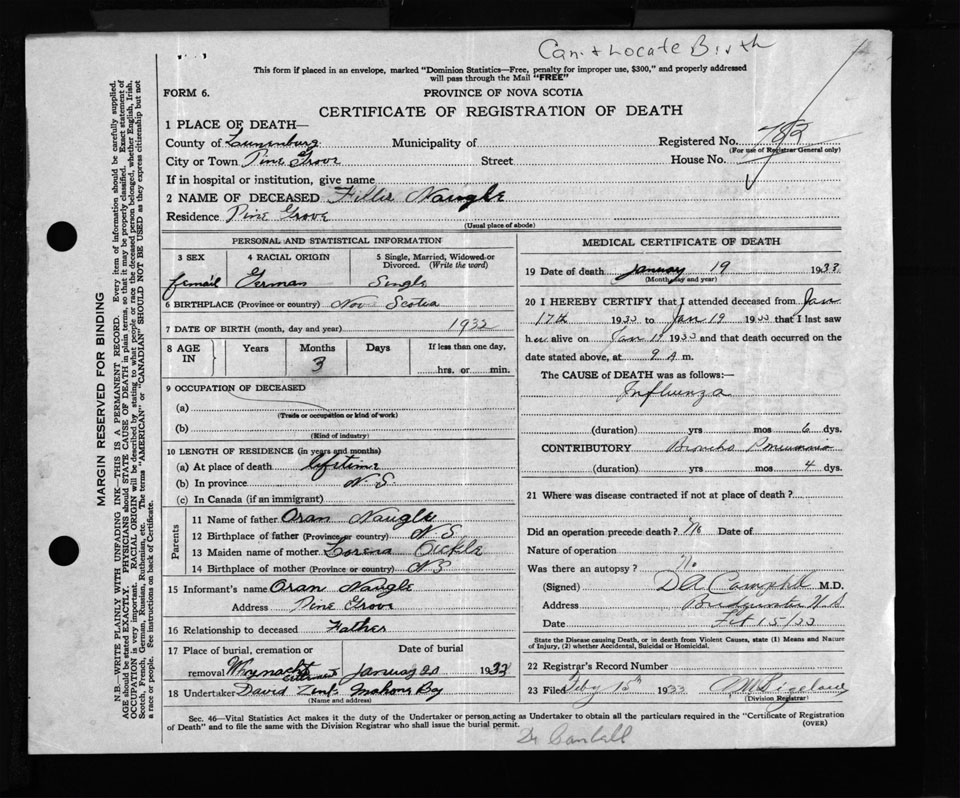 Can't Locate Birth
This form if placed in an envelope, marked "Dominion Statistics—Free, penalty for improper use, $300," and properly addressed
will pass through the Mail "FREE"
FORM 6. PROVINCE OF NOVA SCOTIA
CERTIFICATE OF REGISTRATION OF DEATH
1 PLACE OF DEATH—
County of Lunenburg Municipality of Registered No.
(For use of Registrar General only)
City or Town Pine Grove Street House No.
If in hospital or institution, give name
2 NAME OF DECEASED Fillis Naugle
Residence Pine Grove
(Usual place of abode)
MARGIN RESERVED FOR BINDING
N.B.—WRITE PLAINLY WITH UNFADING INK—THIS IS A PERMANENT RECORD. Every item of information should be carefully supplied.
AGE should be stated EXACTLY. PHYSICIANS should STATE CAUSE OF DEATH in plain terms, so that it may be properly classified. Exact statement of
OCCUPATION is very important. RACIAL ORIGIN will be described by stating to what people or race the deceased person belonged, whether English, Irish,
Scotch, French, German, Russian, Ruthenian, etc. The terms "AMERICAN" or "CANADIAN" SHOULD NOT BE USED as they express citizenship but not
a race or people. See instructions on back of Certificate.
PERSONAL AND STATISTICAL INFORMATION
3 SEX 4 RACIAL ORIGIN 5 Single, Married, Widowed or
Divorced. (Write the word)
femail German Single
6 BIRTHPLACE (Province or country) Nova Scotia
7 DATE OF BIRTH (month, day and year) 1932
8 AGE IN Years Months Days If less than one day,
3 hrs. or min.
9 OCCUPATION OF DECEASED
(a)
(Trade or occupation or kind of work)
(b)
(Kind of industry)
10 LENGTH OF RESIDENCE (in years and months)
(a) At place of death lifetime
(b) In province N.S
(c) In Canada (if an immigrant)
Parents
11 Name of father Oran Naugle
12 Birthplace of father (Province or country) N.S
13 Maiden name of mother Lorena Oickle
14 Birthplace of mother (Province or country) N.S
15 Informant's name Oran Naugle
Address Pine Grove
16 Relationship to deceased Father
17 Place of burial, cremation or Date of burial
removal January 20 1933
18 Undertaker David Mahone Bay
(Name and address)
MEDICAL CERTIFICATE OF DEATH
19 Date of death January 19 1933
(Month, day and year)
20 I HEREBY CERTIFY that I attended deceased from Jan
17th 1933 to Jan 19 1933 that I last saw
her alive on Jan 1933 and that death occurred on the
date stated above, at 9 A m.
The CAUSE of DEATH was as follows:—
Influenza
(duration) yrs mos 6 dys.
CONTRIBUTORY Broncho Pneumonia
(duration) yrs mos 4 dys.
21 Where was disease contracted if not at place of death?
Did an operation precede death? No Date of
Nature of operation
Was there an autopsy? No
(Signed) DA Campbell M.D.
Address Bridgewater N.S
Date Feb 15/33
State the Disease causing Death, or in death from Violent Causes, state (1) Means and Nature
of Injury, (2) whether Accidental, Suicidal or Homicidal.
22 Registrar's Record Number
23 Filed Feby 15th 1933
(Division Registrar)
Sec. 46—Vital Statistics Act makes it the duty of the Undertaker or person acting as Undertaker to obtain all the particulars required in the "Certificate of Registration
of Death" and to file the same with the Division Registrar who shall issue the burial permit. (OVER)
Dr